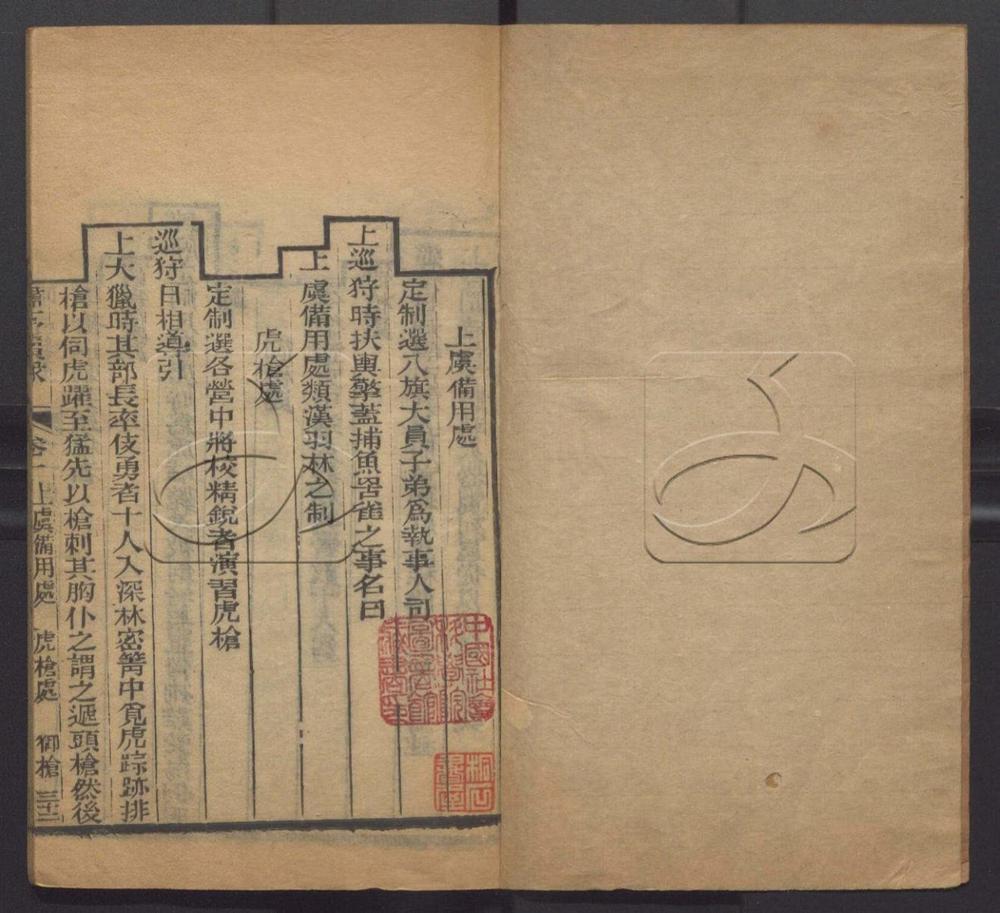 上虞備用處
定制選八旗大員子弟爲執事人司
上巡狩時扶輿擎蓋捕魚罟雀之事名曰
上虞備用處類漢羽林之制
虎槍處
定制選各營中將校精銳者演習虎槍
巡狩日相導引
上大獵時其部長率伎勇者十人入深林密箐中覓虎踪跡排
槍以伺虎躍至猛先以槍刺其胸仆之謂之遞頭槍然後
卷一上虞備用處 虎槍處 御槍
中國社會